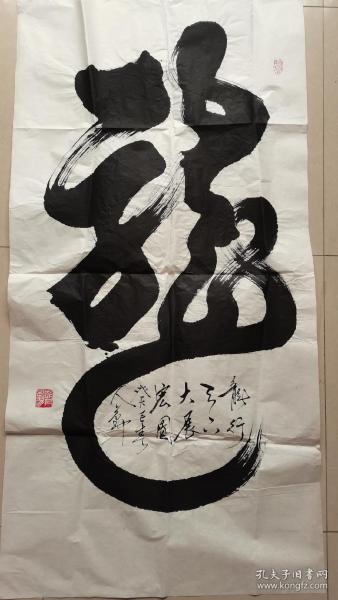 龍
龍行
天下
大展
宏圖
戊辰年春
孔夫子旧书网
kongfz.com